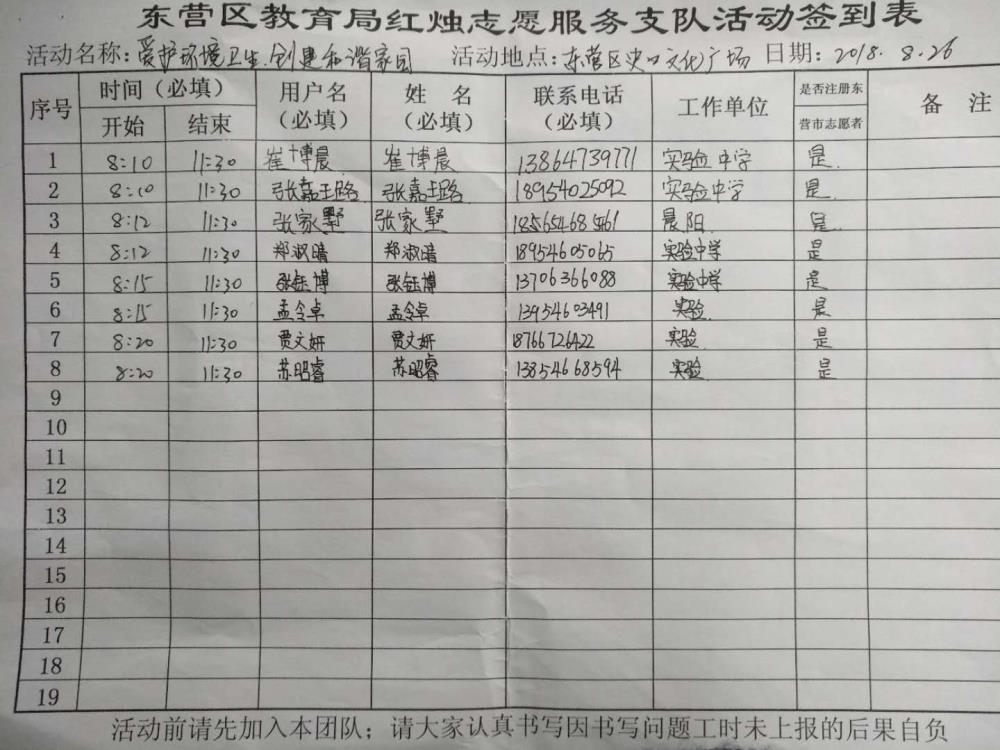 东营区教育局红烛志愿服务支队活动签到表
活动名称:爱护环境卫生.创建和谐家园 活动地点:东营区史口文化广场 日期:2018.8.26
序号 时间（必填） 用户名 姓 名 联系电话 工作单位 是否注册东 备 注
开始 结束 （必填） （必填） （必填） 营市志愿者
1 8:10 11:30 崔博晨 崔博晨 13864739771 实验中学 是
2 8:10 11:30 张嘉璐 张嘉璐 18954025092 实验中学 是
3 8:12 11:30 张家墅 张家墅 晨阳 是
4 8:12 11:30 郑淑晴 郑淑晴 18954605065 实验中学 是
5 8:15 11:30 张钰博 张钰博 13706366088 实验中学 是
6 8:15 11:30 孟令卓 孟令卓 13954603491 实验 是
7 8:20 11:30 贾文妍 贾文妍 18766726422 实验 是
8 8:20 11:30 苏昭睿 苏昭睿 13854668594 实验 是
9
10
11
12
13
14
15
16
17
18
19
活动前请先加入本团队；请大家认真书写因书写问题工时未上报的后果自负